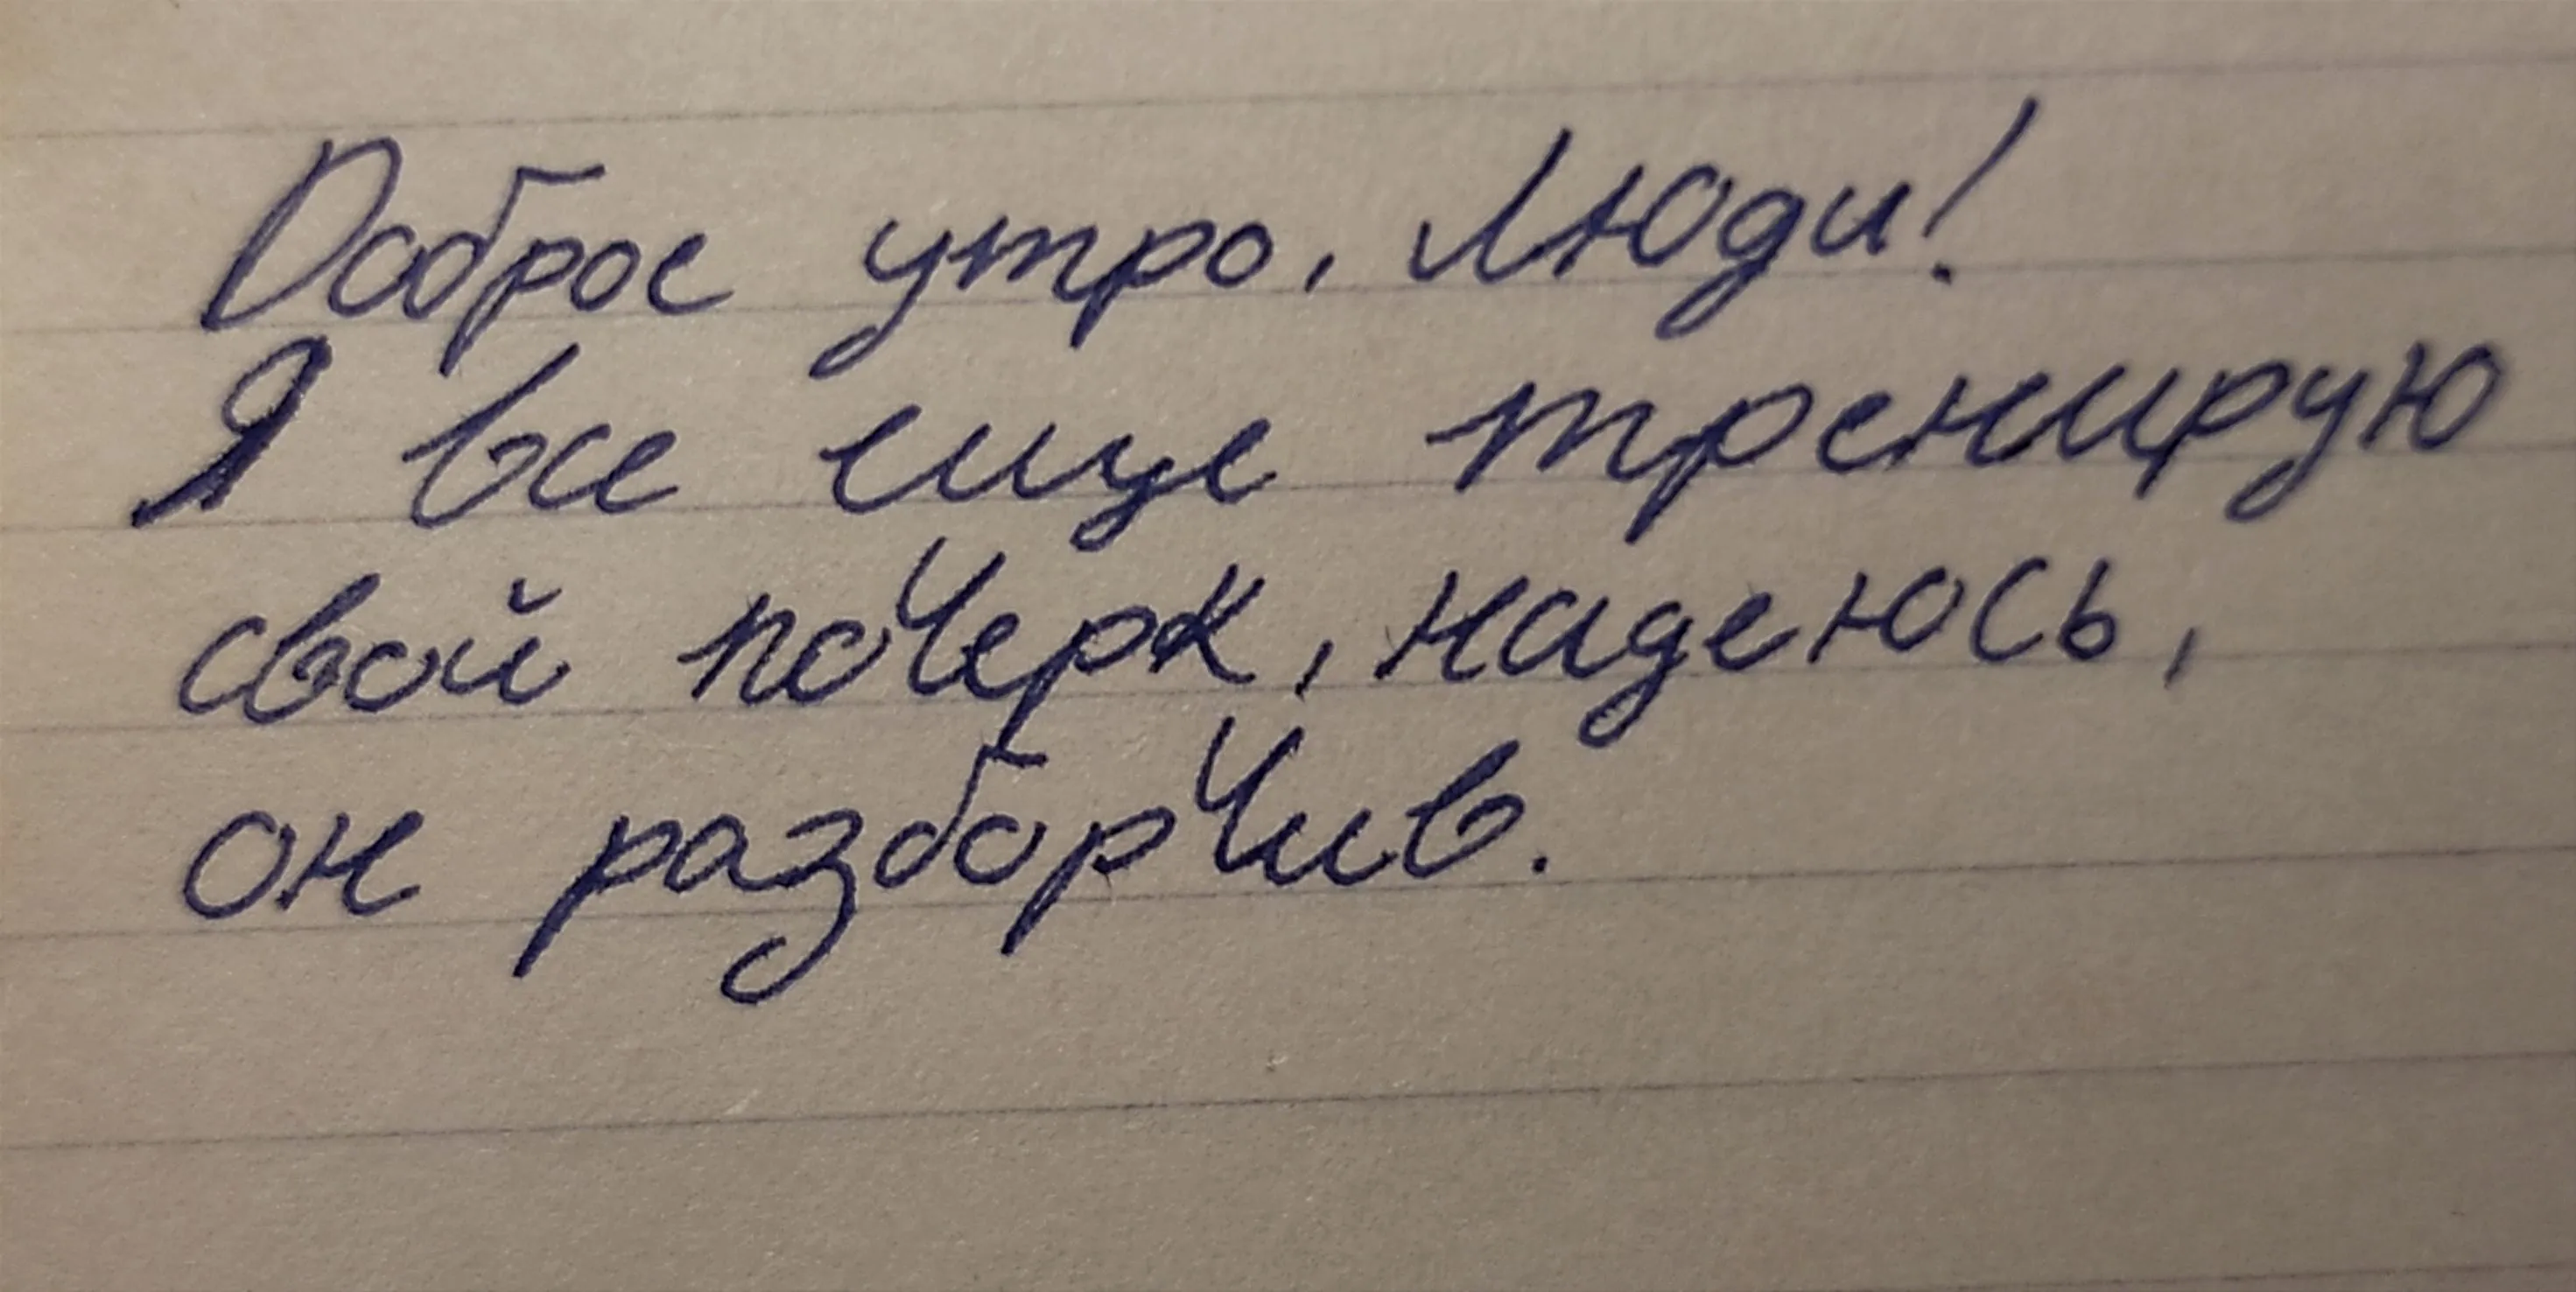 Доброе утро, Люди!
Я все еще тренирую
свой почерк, надеюсь,
он разборчив.